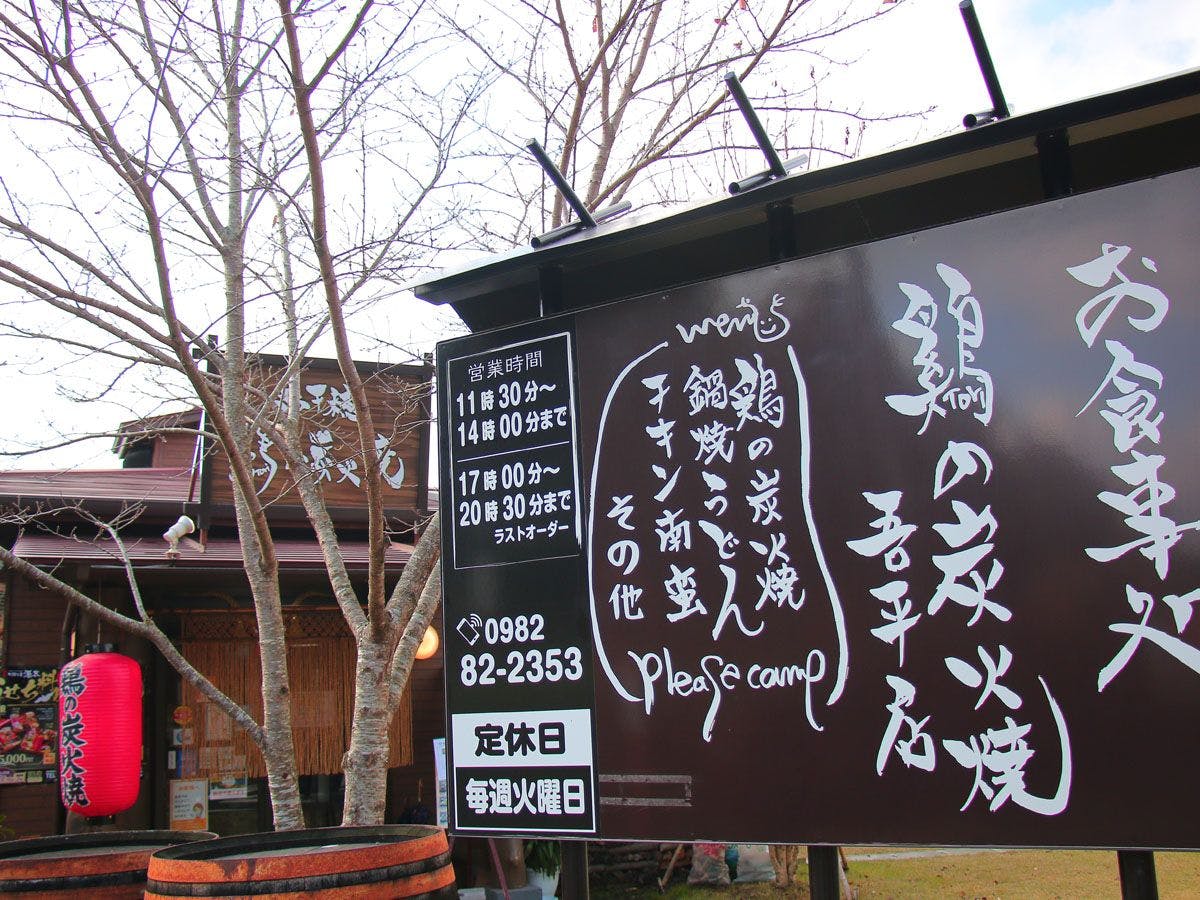 お食事処
鶏の炭火焼
吾平店
menu
鶏の炭火焼
鍋焼うどん
チキン南蛮
その他
please comp
営業時間
11時30分〜
14時00分まで
17時00分〜
20時30分まで
ラストオーダー
0982
82-2353
定休日
毎週火曜日
鶏の炭火焼